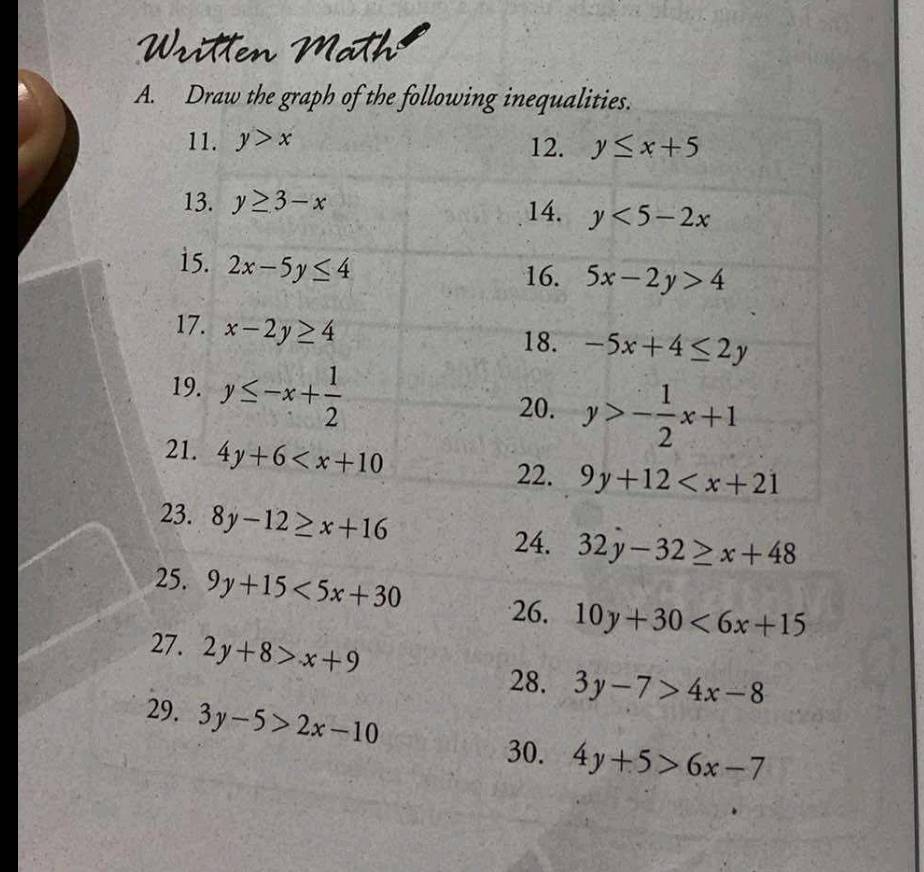 Written Math
A. Draw the graph of the following inequalities.
11. y > x
12. y ≤ x + 5
13. y ≥ 3 − x
14. y < 5 − 2x
15. 2x − 5y ≤ 4
16. 5x − 2y > 4
17. x − 2y ≥ 4
18. −5x + 4 ≤ 2y
19. y ≤ −x + 1/2
20. y > −1/2 x + 1
21. 4y + 6 < x + 10
22. 9y + 12 < x + 21
23. 8y − 12 ≥ x + 16
24. 32y − 32 ≥ x + 48
25. 9y + 15 < 5x + 30
26. 10y + 30 < 6x + 15
27. 2y + 8 > x + 9
28. 3y − 7 > 4x − 8
29. 3y − 5 > 2x − 10
30. 4y + 5 > 6x − 7